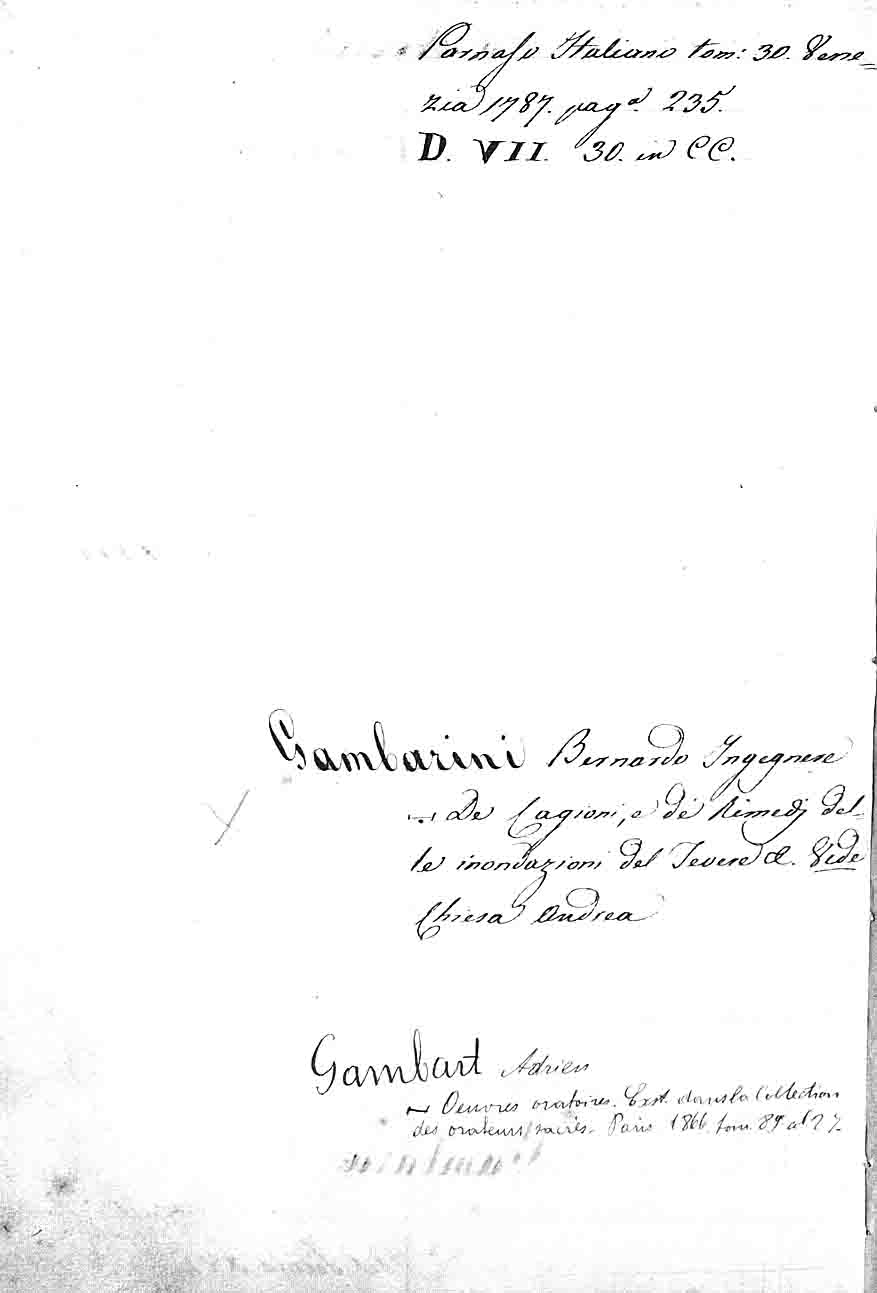 Parnaso Italiano tom: 30. Vene=
zia 1787. pag.ª 235.
D. VII. 30. in CC.
Gambarini Bernardo Ingegnere
De Cagioni, e de' Rimedj del-
le inondazioni del Tevere &. Vide
Chiesa Andrea
Gambart Adrien
Oeuvres oratoires. Exst. dans la Collection
des orateurs sacrés. Paris 1866. tom. 89